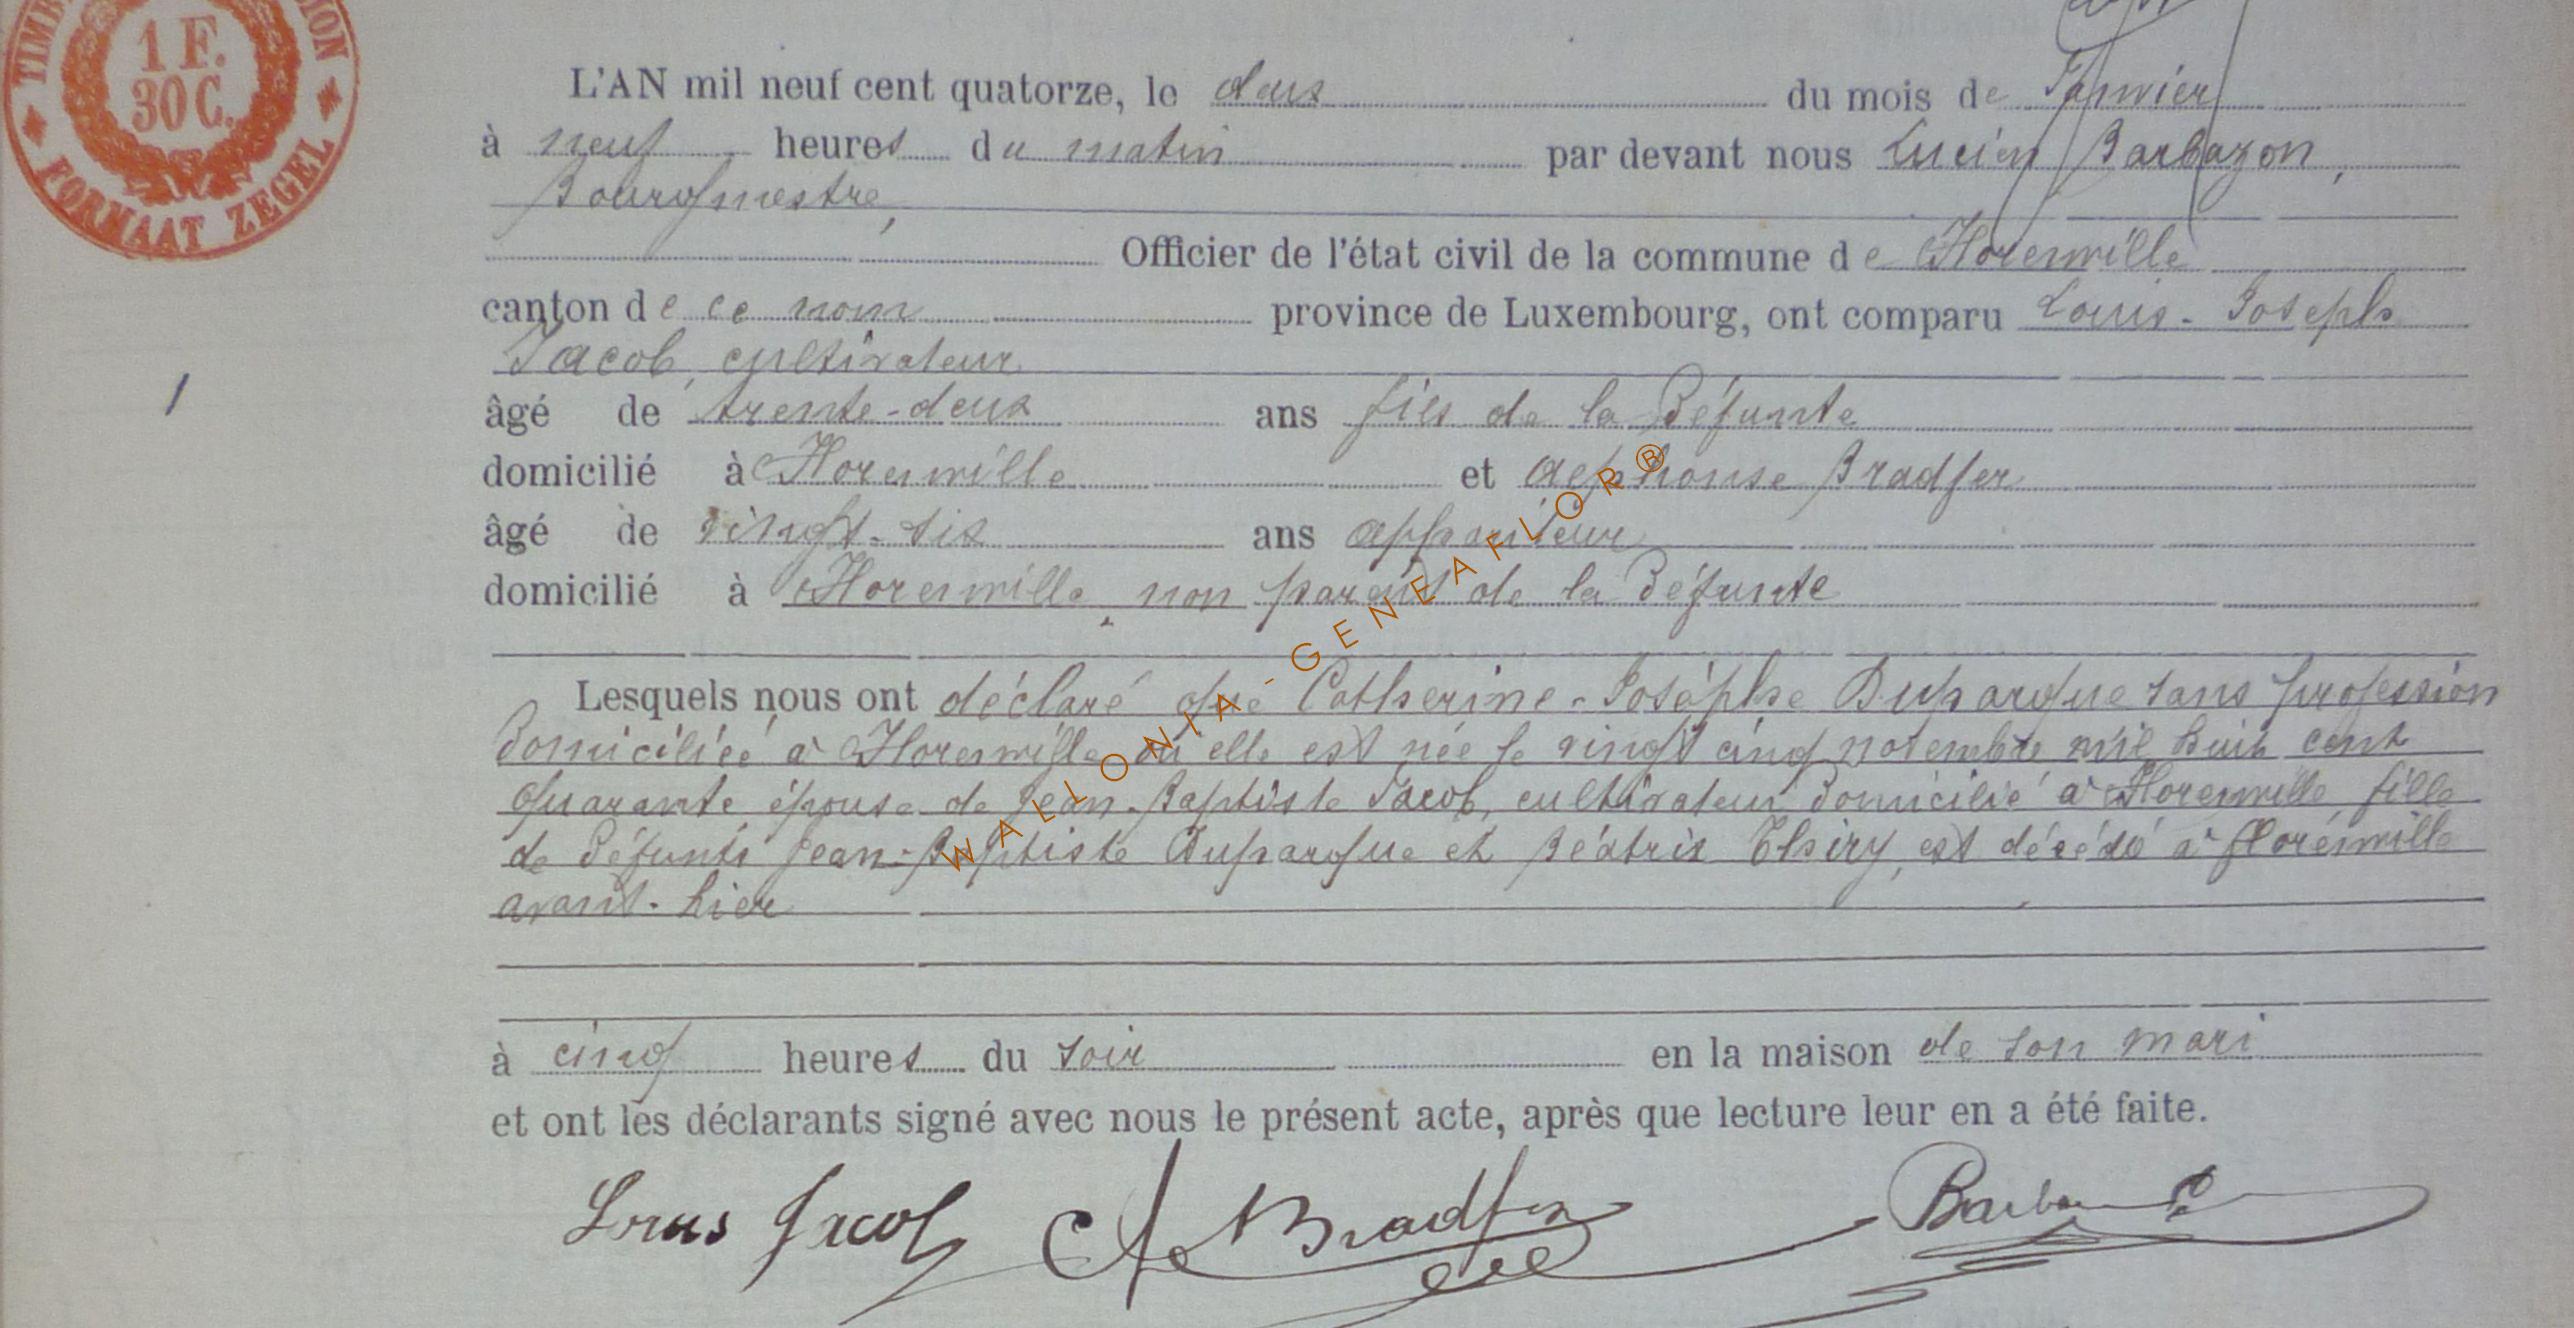 TIMB
ION
1 F.
30 C.
FORMAAT ZEGEL
L'AN mil neuf cent quatorze, le deux du mois de Janvier
à neuf heures du matin par devant nous Lucien Barbazon,
Bourgmestre,
Officier de l'état civil de la commune de Florenville
canton de ce nom province de Luxembourg, ont comparu Louis-Joseph
Jacob, cultivateur
âgé de trente-deux ans fils de la défunte
domicilié à Florenville et Alphonse Bradfer
âgé de vingt-six ans appariteur
domicilié à Florenville, non parent de la défunte
1
Lesquels nous ont déclaré que Catherine-Josèphe Duparque sans profession
domiciliée à Florenville où elle est née le vingt cinq novembre mil huit cent
quarante, épouse de Jean-Baptiste Jacob, cultivateur domicilié à Florenville, fille
de défunts Jean-Baptiste Duparque et Béatrix Thiry, est décédé à Florenville
avant-hier
à cinq heures du soir en la maison de son mari
et ont les déclarants signé avec nous le présent acte, après que lecture leur en a été faite.
Louis Jacob A Bradfer
WALLONIA-GENEAFLOR®